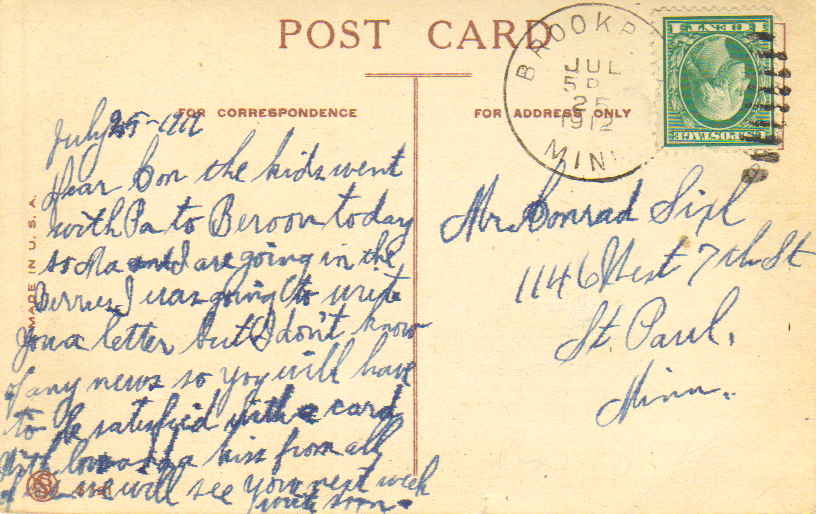 POST CARD
FOR CORRESPONDENCE
FOR ADDRESS ONLY
MADE IN U.S.A.
BROOKP
JUL
5 P
25
1912
MINN
U.S. POSTAGE
1 CENT 1
July 25-1912
Dear Con the kids went
with Pa to Beroon today
so Ma and I are going in the
Berries I was going to write
you a letter but I don't know
of any news so you will have
to be satisfied with a card
With love and a kiss from all
of we will see you next week
write soon.
Mr. Conrad Sixl
1146 West 7th St
St. Paul.
Minn.